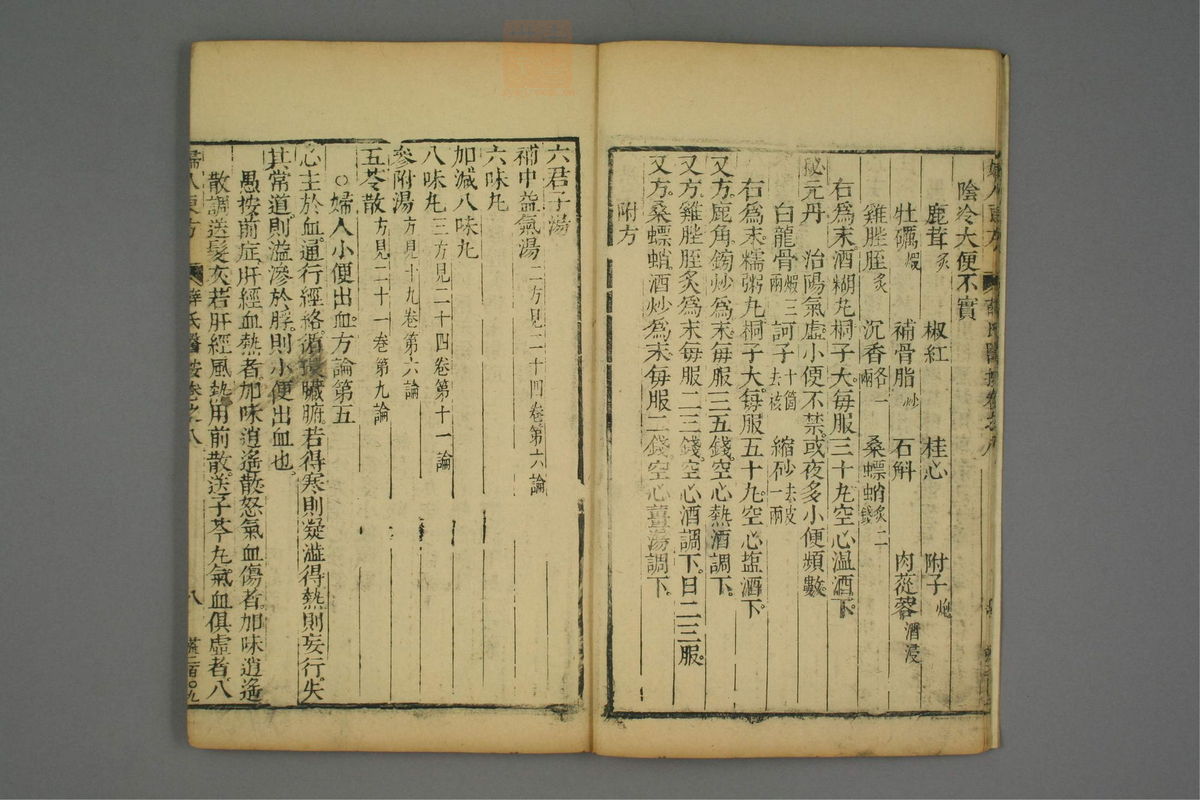 陰冷大便不實
鹿茸炙 椒紅 桂心 附子炮
牡礪煆 補骨脂炒 石斛 肉蓯蓉酒浸
雞膍胵炙 沉香各一兩 桑螵蛸炙二錢
右爲末酒糊丸桐子大每服三十丸空心溫酒下
秘元丹 治陽氣虛小便不禁或夜多小便頻數
白龍骨煆三兩 訶子十箇去核 縮砂去皮一兩
右爲末糯粥丸桐子大每服五十丸空心塩酒下
又方鹿角鎊炒爲末每服三五錢空心熱酒調下
又方雞膍胵炙爲末每服二三錢空心酒調下日二三服
又方桑螵蛸酒炒爲末每服二錢空心薑湯調下
附方
六君子湯
補中益氣湯二方見二十四卷第六論
六味丸
加減八味丸
八味丸三方見二十四卷第十一論
參附湯方見十九卷第六論
五苓散方見二十一卷第九論
○婦人小便出血方論第五
心主於血通行經絡循環臟腑若得寒則凝澁得熱則妄行失
其常道則溢滲於脬則小便出血也
愚按前症肝經血熱者加味逍遙散怒氣血傷者加味逍遙
散調送髮灰若肝經風熱用前散送子芩丸氣血俱虛者八
婦人良方 薛氏醫按卷之八 八